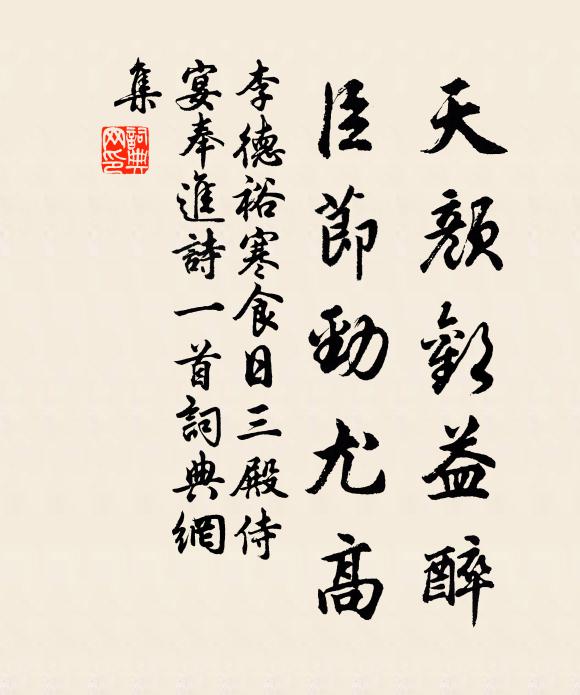 天顏歡益醉
臣節勁尤高
李德裕寒食日三殿侍
宴奉進詩一首詞典網
集
詞典
网印